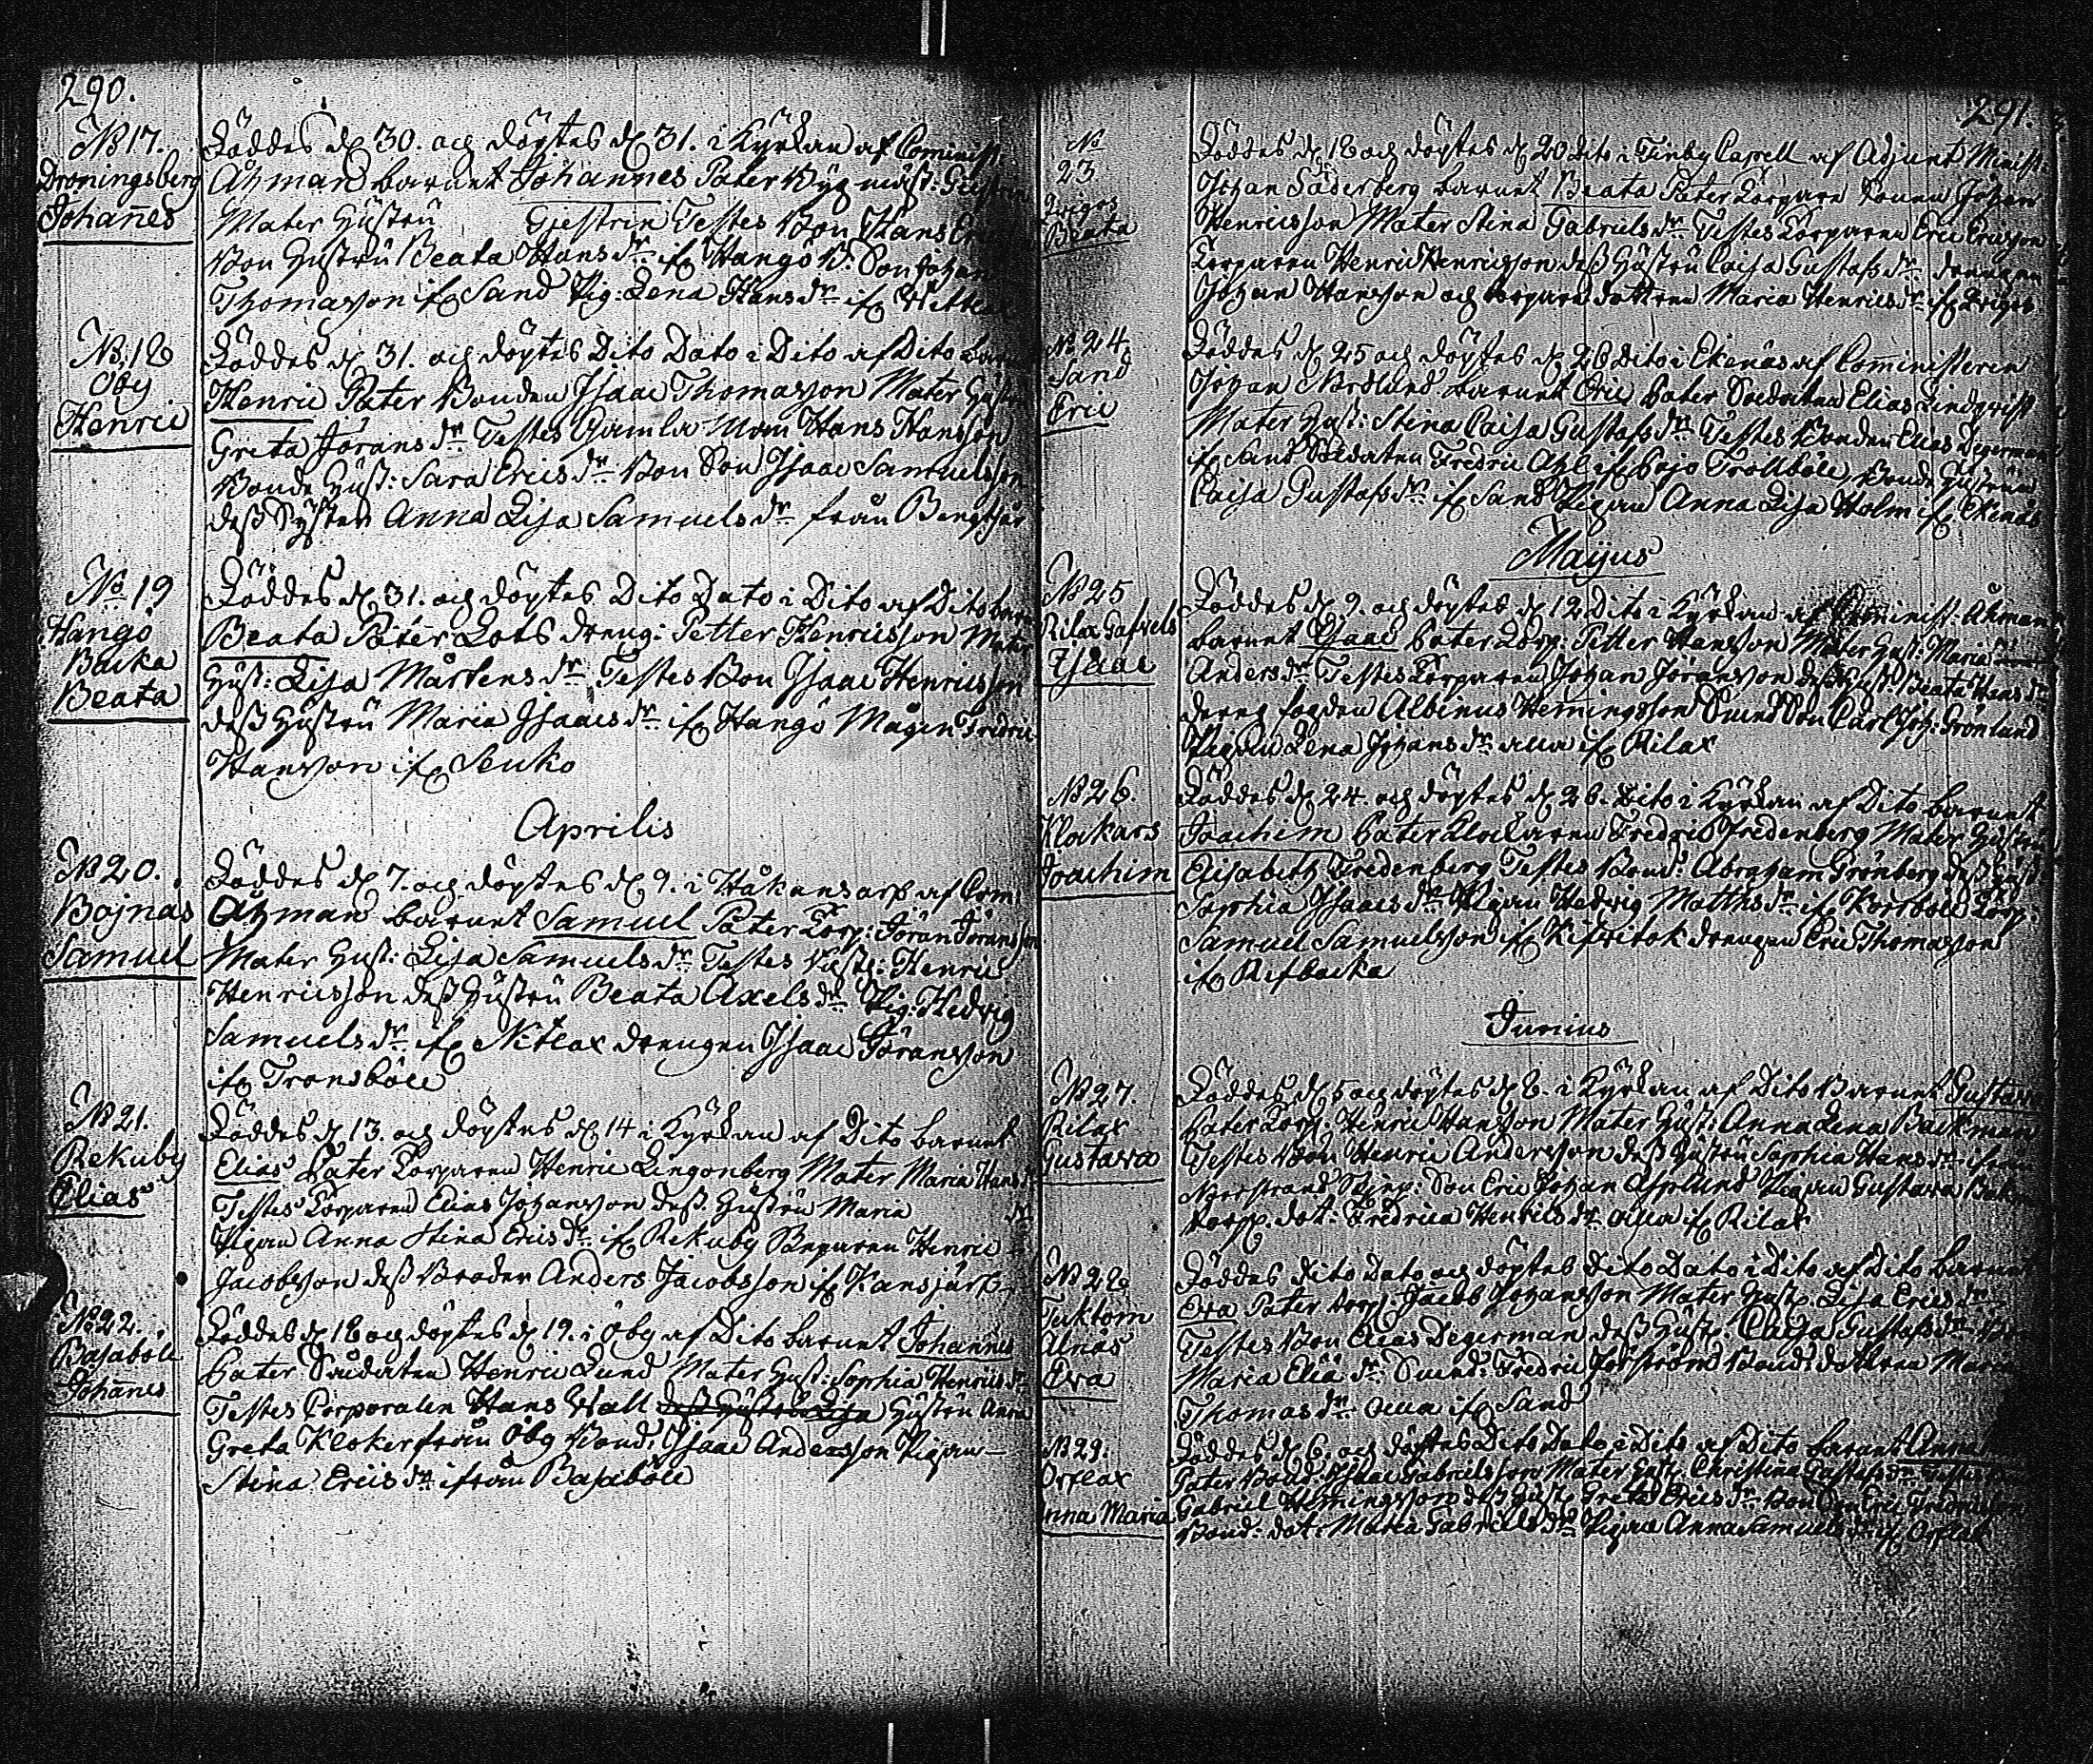 290.
No 17.
Droningsberg
Johannes
Föddes d. 30. och döptes d. 31. i Kyrkan af Cominist
Åhman barnet Johannes Pater Byg-mäst:
Mater Hustru Gjestrin Testes Bon Hans
Bon Hustru Beata Hans dr. ifr. Hangö B. Son Johan
Thomasson ifr. Sand Pig: Lena Hans dr. ifr.
No. 18
Öby
Henric
Föddes d. 31. och döptes Dito Dato i Dito af Dito barnet
Henric Pater Bonden Isaac Thomasson Mater Hustru
Greta Jörans dr. Testes Gamla Mom Hans Hansson
Bonde Hust: Sara Erics dr. Bon Son Isaac Samuelsson
dess Syster Anna Lisa Samuels dr. från Bengtsår
No. 19
Hangö
Backa
Beata
Föddes d. 31. och döptes Dito Dato i Dito af Dito barn
Beata Pater Lots dreng: Petter Henricsson Mater
Hust: Lisa Mårtens dr. Testes Bon Isaac Henricsson
dess Hustru Maria Isaacs dr. ifr. Hangö Mågen Fredric
Hansson ifr. Senko
Aprilis
No 20.
Bojnas
Samuel
Föddes d. 7. och döptes d. 9. i Håkansarf af Com:
Åhman barnet Samuel Pater Torp: Jöran Jöransson
Mater Hust: Lisa Samuels dr. Testes Henric
Henricsson dess Hustru Beata Axels dr. Pig: Hedvig
Samuels dr. ifr. Nitlax drengen Isaac Göransson
ifr. Transböle
No 21.
Rekuby
Elias
Föddes d. 13. och döptes d. 14 i Kyrkan af Dito barnet
Elias Pater Torparen Henric Lingonberg Mater Maria Hans dr.
Testes Torparen Elias Johansson dess Hustru Maria dr.
Pigan Anna Stina Erics dr. ifr. Rekuby Torparen Henric
Jacobsson dess Broder Anders Jacobsson ifr. Kansjärf
No 22.
Basaböle
Johannes
Föddes d. 18 och döptes d. 19. i Öby af Dito barnet Johannes
Pater Soldaten Henric Lund Mater Hust: Sophia Henrics dr.
Testes Corporalen Hans Wall dess Hustru Lisa Hustru Anna
Greta Kloker från Öby Bond: Isaac Andersson Pigan
Stina Erics dr. ifrån Basaböle
291.
No
23
Beata
Föddes d. 18 och döptes d. 20 Dito i Finby Capell af Adjunct Minist:
Johan Söderberg barnet Beata Pater Torpare Sonen Johan
Henricsson Mater Stina Gabriels dr. Testes Torparen Eric Ericsson
Torparen Henric Henricsson dess Hustru Caisa Gustafs dr. drengen
Johan Hansson och torpare dottren Maria Henrics dr. ifr.
No 24
Sand
Eric
Föddes d. 25 och döptes d. 26 Dito i Ekenäs af Cominister
Johan Nordlund barnet Eric Pater Soldaten Elias Lindqvist
Mater Hust: Stina Caisa Gustafs dr. Testes Bonden Elias Degerman
ifr. Sand Soldaten Fredric Ahl ifr. Pojo Trollböle, Bonde Hustrun
Caisa Gustafs dr. ifr. Sand Pigan Anna Lisa Holm ifr. Ekenäs
Maijus
No 25
Rilax Gafvels
Isaac
Föddes d. 9. och döptes d. 12 Dito i Kyrkan af Cominist: Åhman
barnet Isaac Pater Torp: Petter Hansson Mater Hust: Maria
Anders dr. Testes Torparen Johan Jöransson dess Hust: Beata Hans dr.
dreng fogden Albinus Hemingsson Carl Joh: Grönlund
Pigan Lena Johans dr. alla ifr. Rilax
No 26.
Klockars
Joachim
Föddes d. 24. och döptes d. 26. Dito i Kyrkan af Dito barnet
Joachim Pater Klockaren Fredric Fredenberg Mater Hustru
Elisabeth Fredenberg Testes Bond: Abraham Grönberg dess Hust:
Sophia Isaacs dr. Pigan Hedvig Matths dr. ifr. Korsböle Torp:
Samuel Samuelsson ifr. drengen Eric Thomasson
ifr. Refbacka
Junius
No 27.
Rilax
Gustava
Föddes d. 5 och döptes d. 6. i Kyrkan af Dito Barnet Gustava
Pater Torp: Henric Hansson Mater Hust: Anna Lena Backman
Testes Bon Henric Andersson dess Hustru Sophia Hans dr. ifrån
Norstrand Son Eric Johan Asplund Pigan Gustava
torp: dot: Fredrica Henrics dr. alla ifr. Rilax
No 28
Tuktom
Alnäs
Eva
Föddes Dito Dato och döptes Dito Dato i Dito af Dito barnet
Eva Pater torp: Jacob Johansson Mater Hust: Lisa Erics dr.
Testes Bon Elias Degerman dess Hust: Caisa Gustafs dr.
Maria Eliæ dr. Fredric Forström Bond: dottren Maria
Thomas dr. alla ifr. Sand
No 29.
Orslax
Anna Maria
Föddes d. 6. och döptes Dito Dato i Dito af Dito barnet Anna
Pater Bond: Isaac Gabrielsson Mater Hust: Christina Gustafs dr. Testes
Gabriel Hemingsson dess Hust: Greta Erics dr. Bon Son Eric
Bond: dot: Maria Gabriels dr. Pigan Anna Samuels dr. ifr. Orslax